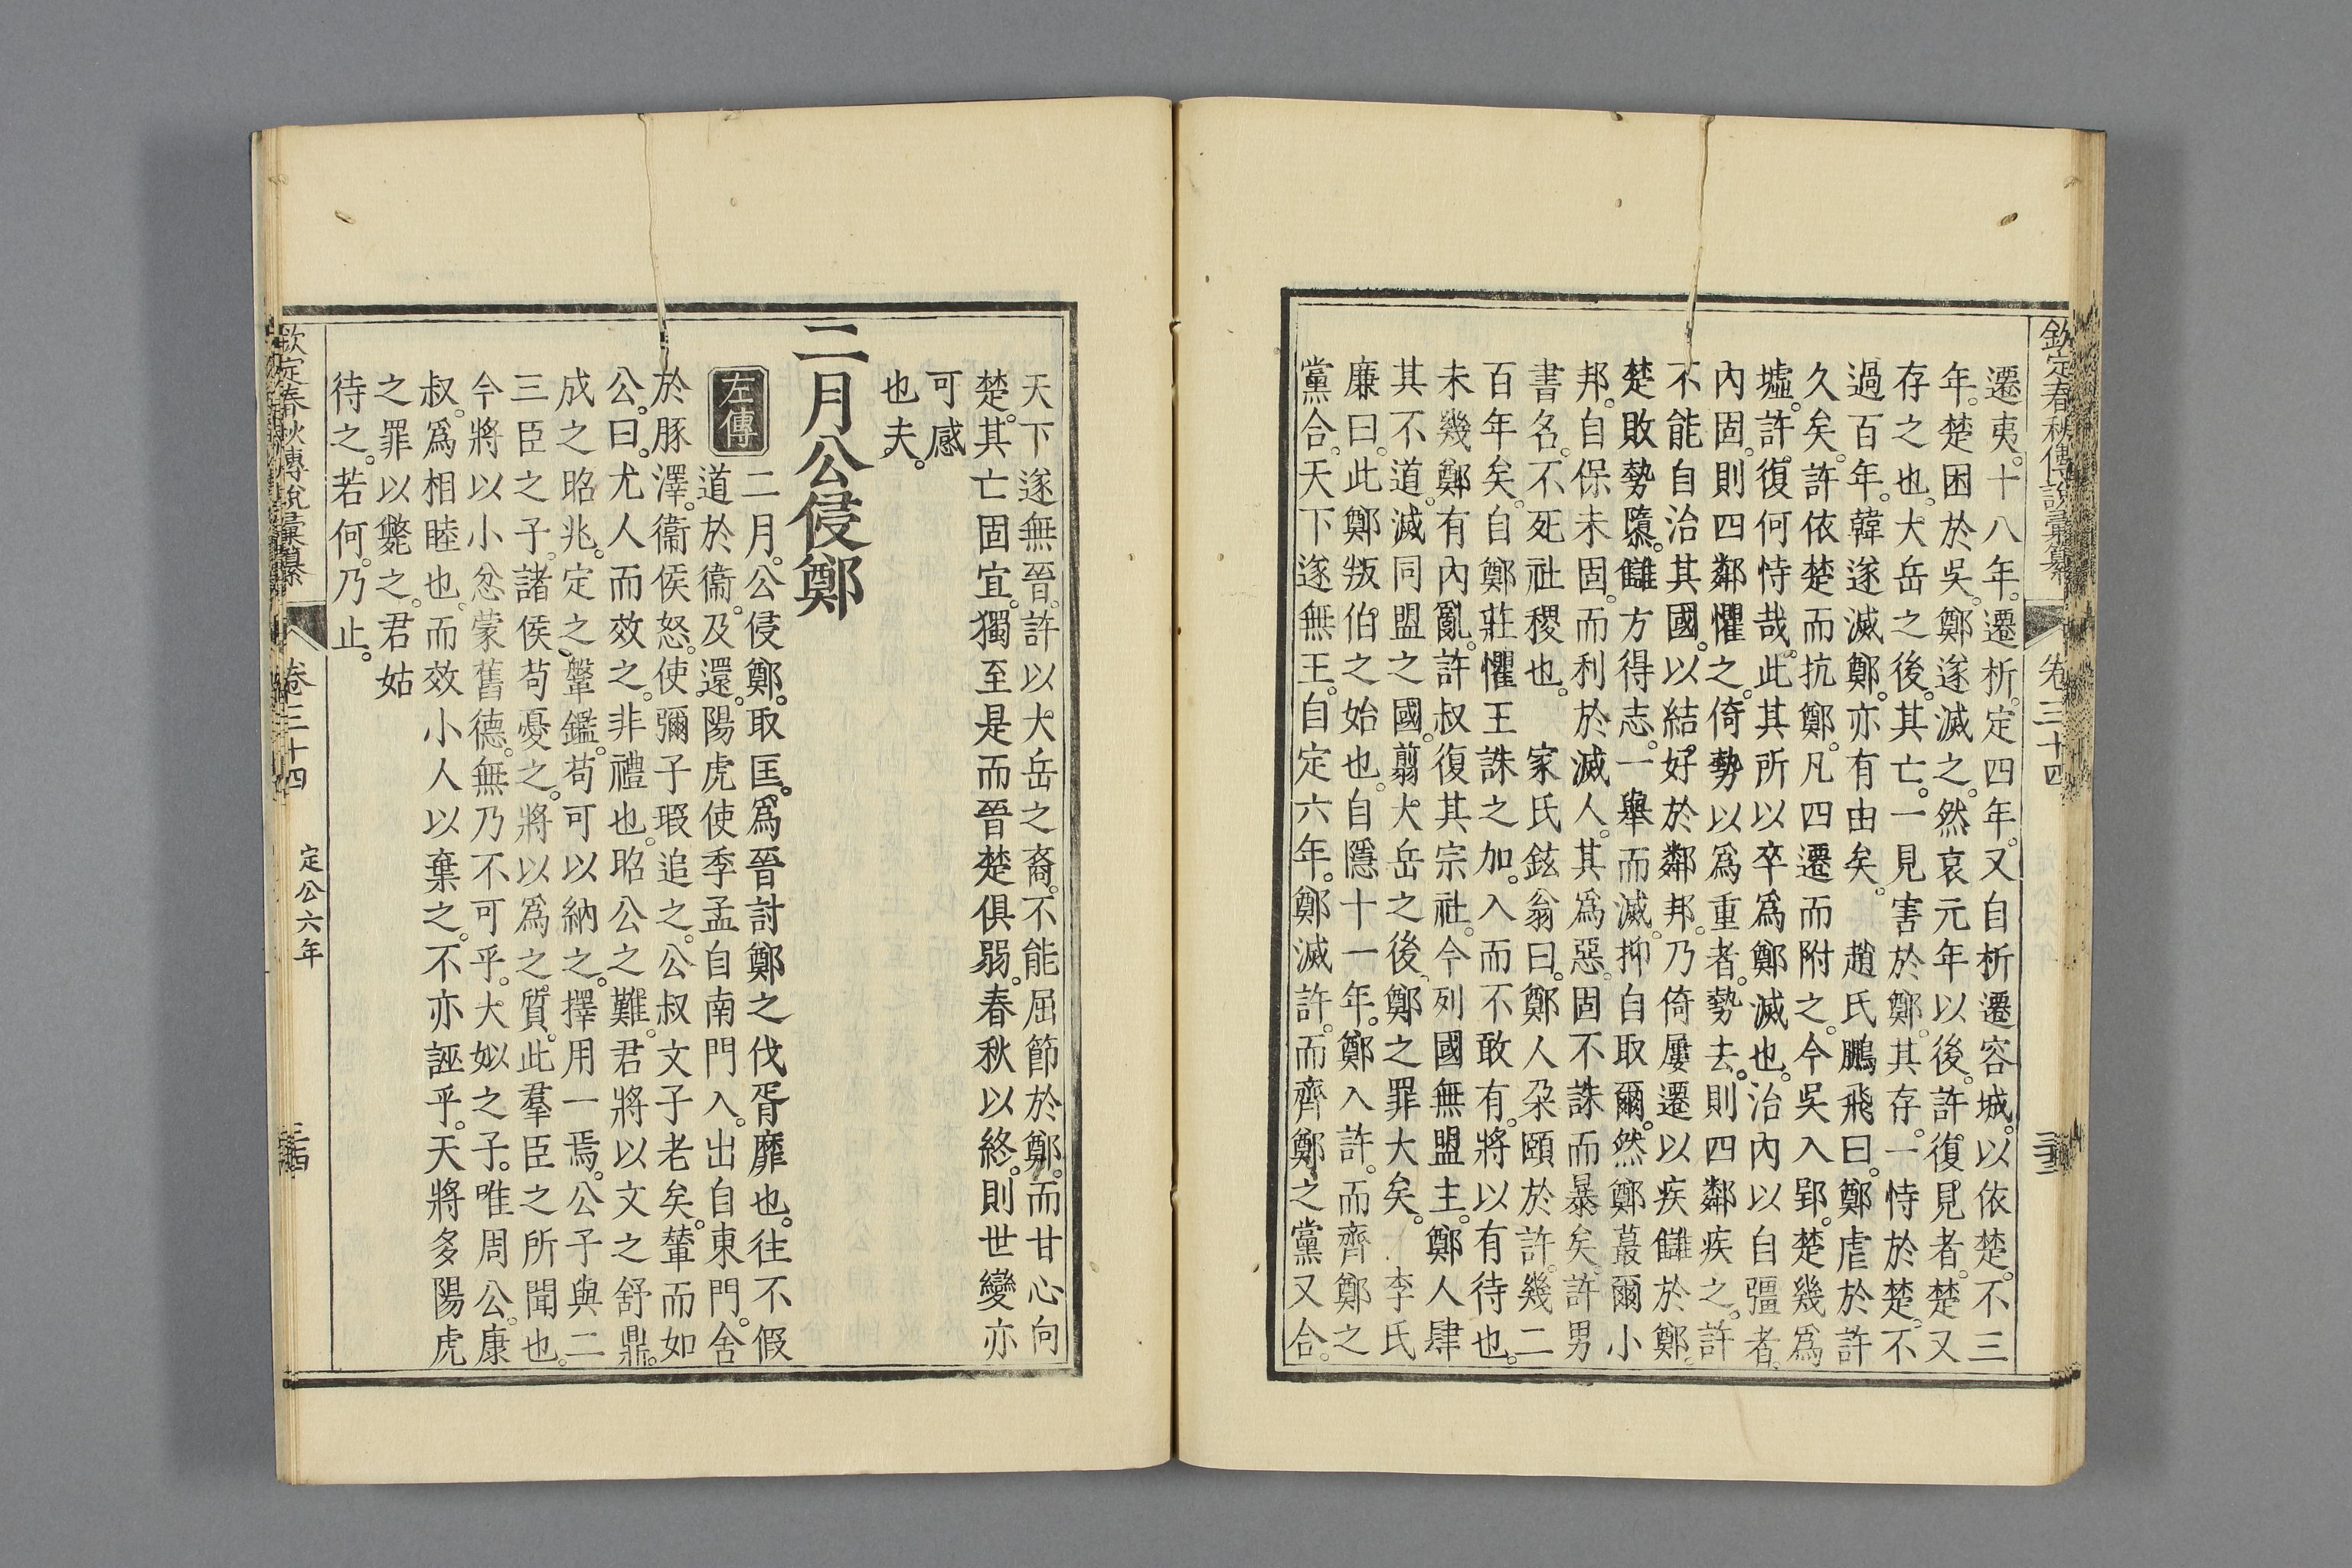 欽定春秋傳說彙纂 卷三十四 三十三
遷夷。十八年。遷析。定四年。又自析遷容城。以依楚。不三
年。楚困於吳。鄭遂滅之。然哀元年以後。許復見者。楚又
存之也。大岳之後。其亡。一見害於鄭。其存。一恃於楚。不
過百年。韓遂滅鄭。亦有由矣。 趙氏鵬飛曰。鄭虐於許
久矣。許依楚而抗鄭。凡四遷而附之。今吳入郢。楚幾爲
墟。許復何恃哉。此其所以卒爲鄭滅也。治內以自彊者。
內固。則四鄰懼之。倚勢以爲重者。勢去。則四鄰疾之。許
不能自治其國。以結好於鄰邦。乃倚屢遷以疾讎於鄭。
楚敗勢隳。讎方得志。一舉而滅。抑自取爾。然鄭蕞爾小
邦。自保未固。而利於滅人。其爲惡。固不誅而暴矣。許男
書名。不死社稷也。 家氏鉉翁曰。鄭人朶頤於許。幾二
百年矣。自鄭莊懼王誅之加。入而不敢有。將以有待也。
未幾鄭有內亂。許叔復其宗社。今列國無盟主。鄭人肆
其不道。滅同盟之國。翦大岳之後、鄭之罪大矣。 李氏
廉曰。此鄭叛伯之始也。自隱十一年。鄭入許。而齊鄭之
黨合。天下遂無王。自定六年。鄭滅許。而齊鄭之黨又合。
天下遂無晉。許以大岳之裔。不能屈節於鄭。而甘心向
楚。其亡固宜。獨至是而晉楚俱弱。春秋以終。則世變亦
可感
也夫。
二月公侵鄭
左傳
二月。公侵鄭。取匡。爲晉討鄭之伐胥靡也。往不假
道於衞。及還。陽虎使季孟自南門入。出自東門。舍
於豚澤。衞侯怒。使彌子瑕追之。公叔文子老矣。輦而如
公。曰。尤人而效之。非禮也。昭公之難。君將以文之舒鼎。
成之昭兆。定之鞶鑑。苟可以納之。擇用一焉。公子與二
三臣之子。諸侯苟憂之。將以爲之質。此羣臣之所聞也。
今將以小忿蒙舊德。無乃不可乎。大姒之子。唯周公。康
叔。爲相睦也。而效小人以棄之。不亦誣乎。天將多陽虎
之罪以斃之。君姑
待之。若何。乃止。
欽定春秋傳說彙纂 卷三十四 定公六年 三十四